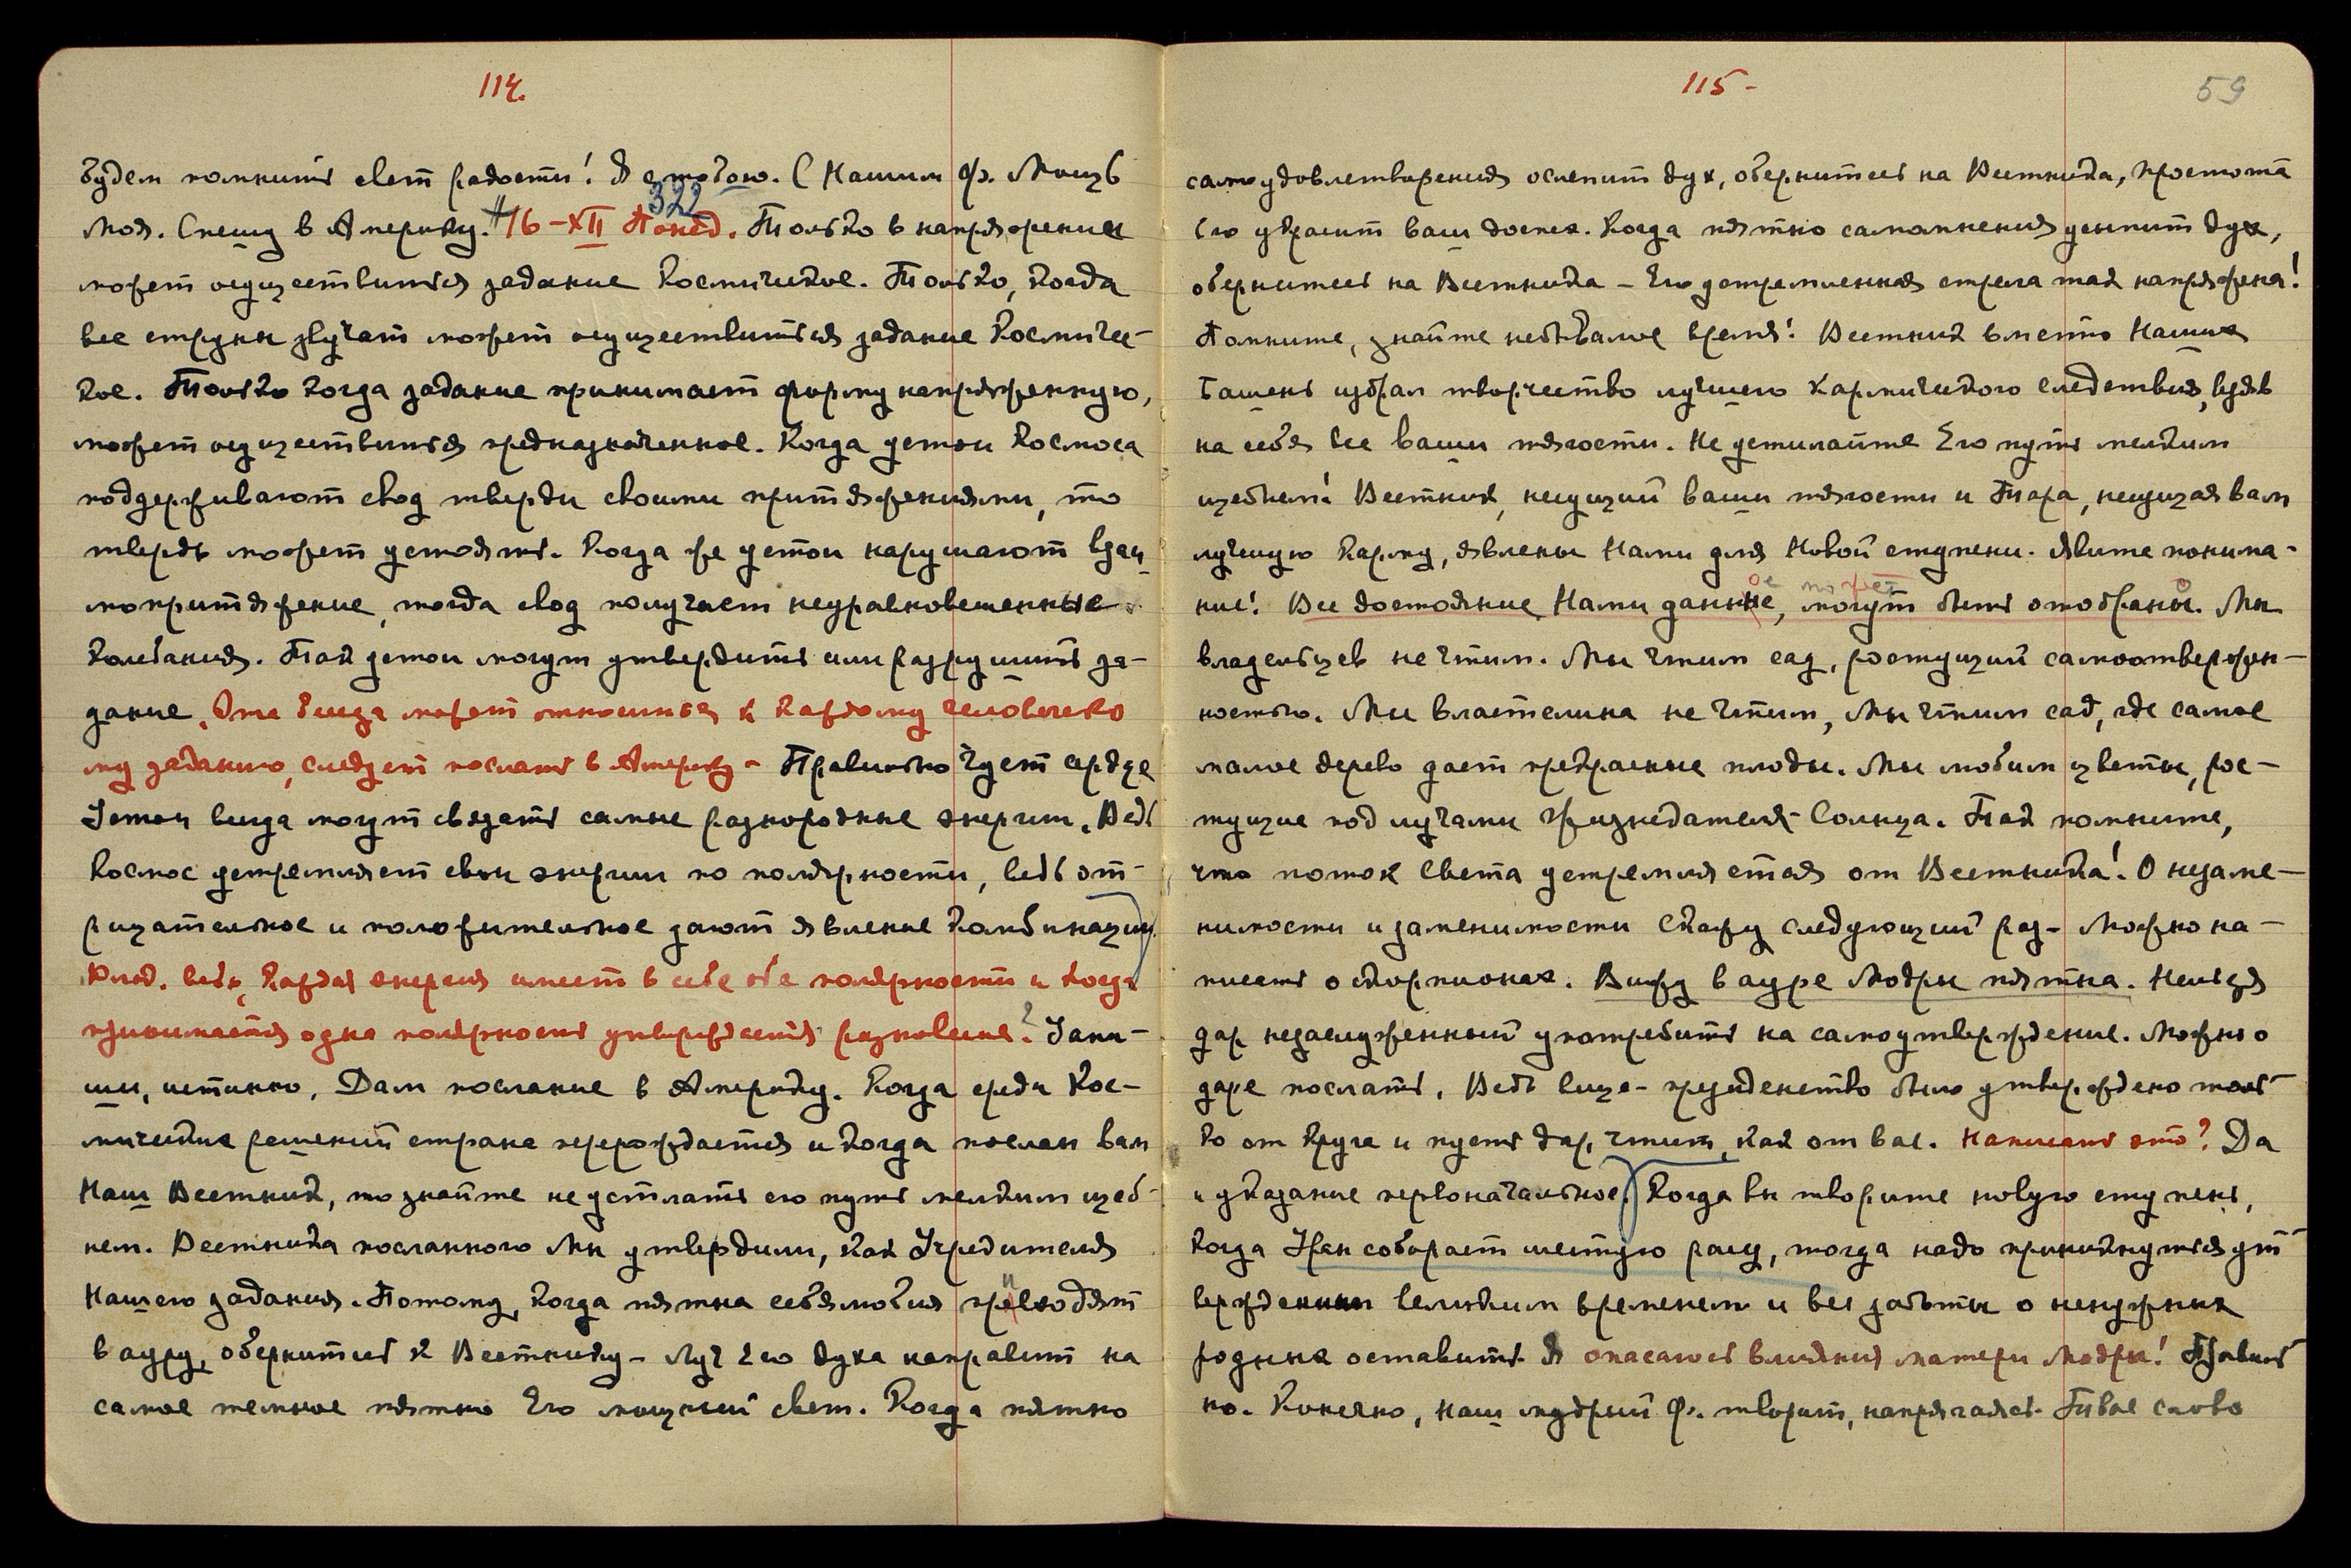 114.
будем помнить свет радости! Я с тобою. С Нашим Ф. Мощь
Моя. Спешу в Америку. # 322 16-XII Понед. Только в напряжении
может осуществиться задание Космическое. Только, когда
все струны звучат может осуществиться задание Космичес-
кое. Только когда задание принимает форму напряженную,
может осуществиться предназначенное. Когда устои Космоса
поддерживают свод тверди своими притяжениями, то
твердь может устоять. Когда же устои нарушают взаи-
мопритяжение, тогда свод получает неуравновешенные
колебания. Так устои могут утвердить или разрушить за-
дание. Эта беседа может относиться к каждому человеческо
му заданию, следует послать в Америку - Правильно чует сердце
Устои всегда могут связать самые разнородные энергии. Ведь
Космос устремляет свои энергии по полярности, ведь от-
рицательное и положительное дают явление комбинации
Влад. ведь, каждая энергия имеет в себе обе полярности и когда
принимается одна полярность утверждается равновесие? Запи-
ши, истинно. Дам послание в Америку. Когда среди Кос-
мических решений страна перерождается и когда послан вам
Наш Вестник, то знайте не устилать его путь мелким щеб-
нем. Вестника посланного Мы утвердили, как Учредителя
Нашего задания. Потому, когда пятна себялюбия приводят
в ауру, обернитесь к Вестнику - Луч Его духа направит на
самое темное пятно Его мощный свет. Когда пятно
115 -
59
самоудовлетворения ослепит дух, обернитесь на Вестника, простота
Его украсит ваш доспех. Когда пятно самомнения уснит дух,
обернитесь на Вестника - Его устремленная стрела так напряжена!
Помните, знайте небывалое время! Вестник вместо Наших
Башень избрал творчество лучшего кармического следствия, взяв
на себя все ваши тягости. Не устилайте Его путь мелким
щебнем! Вестник, несущий ваши тягости и Тара, несущая вам
лучшую Карму, явлены Нами для Новой ступени. Явите понима-
ние! Все достояние Нами данное, может быть отобрано. Мы
владельцев не чтим. Мы чтим сад, растущий самоотвержен-
ностью. Мы властелина не чтим, Мы чтим сад, где самое
малое дерево дает прекрасные плоды. Мы любим цветы, рос-
тущие под лучами Жизнедателя-Солнца. Так помните,
что поток Света устремляется от Вестника! О незаме-
нимости и заменимости скажу следующий раз - Можно на-
писать о скорпионах. Вижу в ауре Модры пятна. Нельзя
дар незаслуженный употребить на самоутверждение. Можно о
даре послать. Ведь вице-президенство было утверждено толь
ко от Круга и пусть дар, чтит, как от вас. Написать это? Да
и указание первоначальное. Когда вы творите новую ступень,
когда Уран собирает шестую расу, тогда надо проникнуться ут
вержденным великим временем и все заботы о ненужных
родных оставить. Я опасаюсь влияния матери Модры! Правиль
но. Конечно, Наш мудрый Ф. творит, напрягаясь. Твое слово